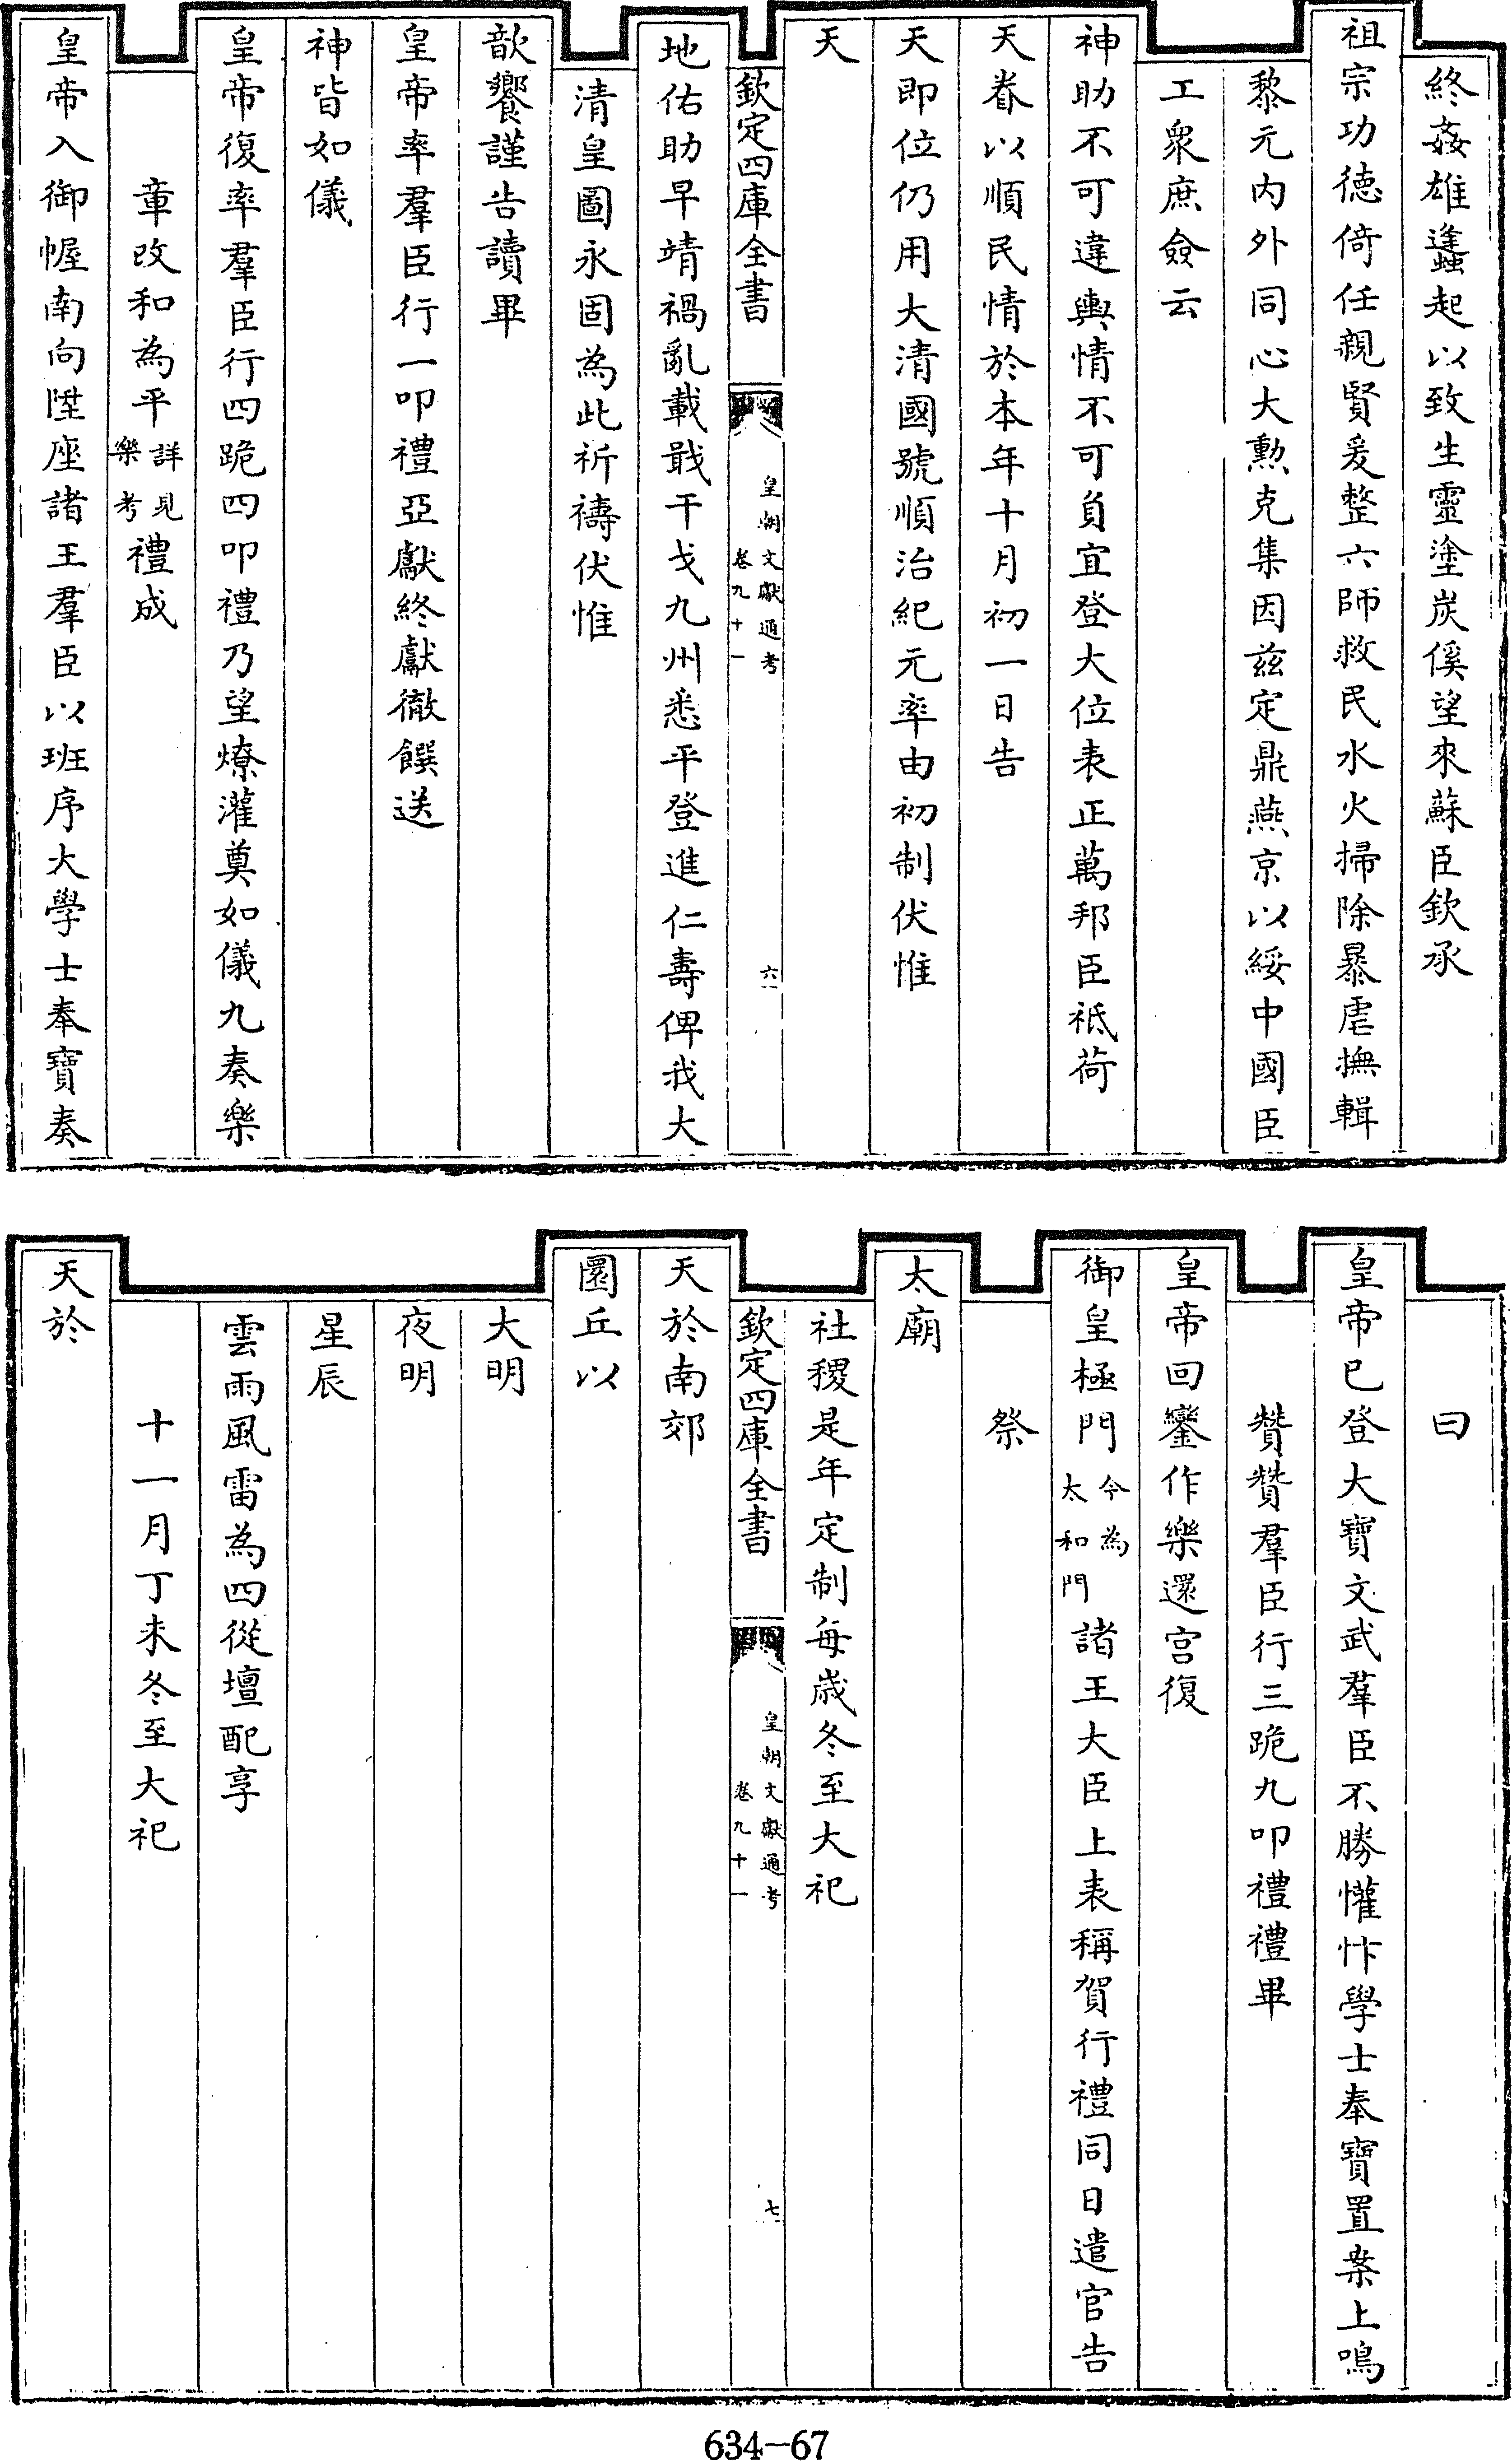 終姦雄蠭起以致生靈塗炭傒望來蘇臣欽承
祖宗功德倚任親賢爰整六師救民水火掃除暴虐撫輯
黎元内外同心大勲克集因兹定鼎燕京以綏中國臣
工衆庶僉云
神助不可違輿情不可負宜登大位表正萬邦臣祗荷
天眷以順民情於本年十月初一日告
天即位仍用大清國號順治紀元率由初制伏惟
天
欽定四庫全書
皇朝文獻通考
卷九十一
六
地佑助早靖禍亂載戢干戈九州悉平登進仁壽俾我大
清皇圖永固為此祈禱伏惟
歆饗謹告讀畢
皇帝率羣臣行一叩禮亞獻終獻徹饌送
神皆如儀
皇帝復率羣臣行四跪四叩禮乃望燎灌奠如儀九奏樂
章改和為平詳見樂考禮成
皇帝入御幄南向陞座諸王羣臣以班序大學士奉寶奏
曰
皇帝已登大寶文武羣臣不勝懽忭學士奉寶置案上鳴
贊贊羣臣行三跪九叩禮禮畢
皇帝回鑾作樂還宫復
御皇極門今為太和門諸王大臣上表稱賀行禮同日遣官告
祭
太廟
社稷是年定制每歲冬至大祀
欽定四庫全書
皇朝文獻通考
卷九十一
七
天於南郊
圜丘以
大明
夜明
星辰
雲雨風雷為四從壇配享
十一月丁未冬至大祀
天於
634-67